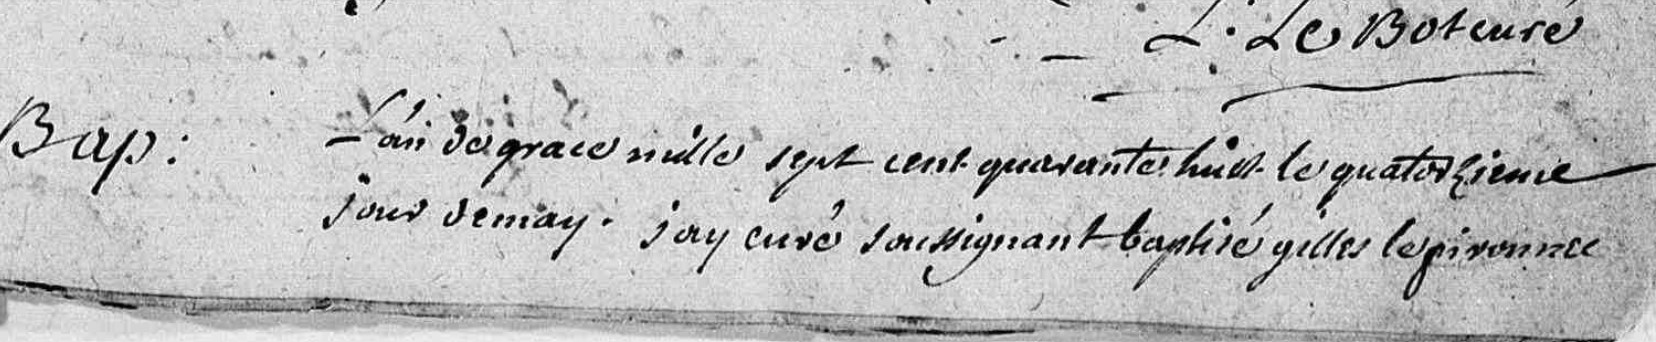 L. Le Bot curé
Bap: L'an de grace mille sept cent quarante huit le quatorzieme
jour de may. j'ay curé soussignant baptisé gilles le pironnec